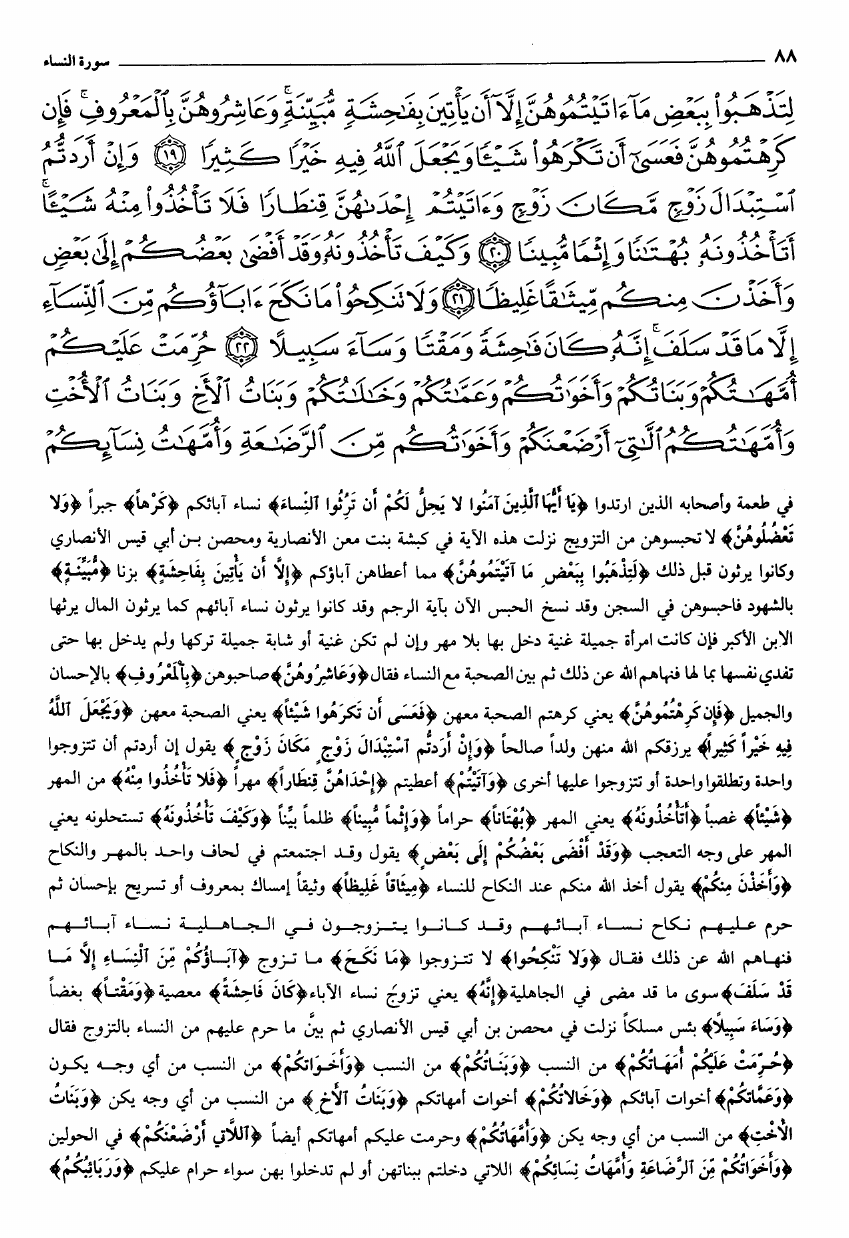 ٨٨ سورة النساء
لِتَذْهَبُوا۟ بِبَعْضِ مَآ ءَاتَيْتُمُوهُنَّ إِلَّآ أَن يَأْتِينَ بِفَٰحِشَةٍ مُّبَيِّنَةٍ ۚ وَعَاشِرُوهُنَّ بِٱلْمَعْرُوفِ ۚ فَإِن
كَرِهْتُمُوهُنَّ فَعَسَىٰٓ أَن تَكْرَهُوا۟ شَيْـًٔا وَيَجْعَلَ ٱللَّهُ فِيهِ خَيْرًا كَثِيرًا ﴿١٩﴾ وَإِنْ أَرَدتُّمُ
ٱسْتِبْدَالَ زَوْجٍ مَّكَانَ زَوْجٍ وَءَاتَيْتُمْ إِحْدَىٰهُنَّ قِنطَارًا فَلَا تَأْخُذُوا۟ مِنْهُ شَيْـًٔا ۚ
أَتَأْخُذُونَهُۥ بُهْتَٰنًا وَإِثْمًا مُّبِينًا ﴿٢٠﴾ وَكَيْفَ تَأْخُذُونَهُۥ وَقَدْ أَفْضَىٰ بَعْضُكُمْ إِلَىٰ بَعْضٍ
وَأَخَذْنَ مِنكُم مِّيثَٰقًا غَلِيظًا ﴿٢١﴾ وَلَا تَنكِحُوا۟ مَا نَكَحَ ءَابَآؤُكُم مِّنَ ٱلنِّسَآءِ
إِلَّا مَا قَدْ سَلَفَ ۚ إِنَّهُۥ كَانَ فَٰحِشَةً وَمَقْتًا وَسَآءَ سَبِيلًا ﴿٢٢﴾ حُرِّمَتْ عَلَيْكُمْ
أُمَّهَٰتُكُمْ وَبَنَاتُكُمْ وَأَخَوَٰتُكُمْ وَعَمَّٰتُكُمْ وَخَٰلَٰتُكُمْ وَبَنَاتُ ٱلْأَخِ وَبَنَاتُ ٱلْأُخْتِ
وَأُمَّهَٰتُكُمُ ٱلَّٰتِىٓ أَرْضَعْنَكُمْ وَأَخَوَٰتُكُم مِّنَ ٱلرَّضَٰعَةِ وَأُمَّهَٰتُ نِسَآئِكُمْ
في طعمة وأصحابه الذين ارتدوا ﴿يَا أَيُّهَا ٱلَّذِينَ آمَنُوا لا يَحِلُّ لَكُمْ أَن تَرِثُوا ٱلنِّساءَ﴾ نساء آبائكم ﴿كَرْهاً﴾ جبراً ﴿وَلا
تَعْضُلُوهُنَّ﴾ لا تحبسوهن من التزويج نزلت هذه الآية في كبشة بنت معن الأنصارية ومحصن بن أبي قيس الأنصاري
وكانوا يرثون قبل ذلك ﴿لَتِذْهَبُوا بِبَعْضِ مَا آتَيْتُمُوهُنَّ﴾ مما أعطاهن آباؤكم ﴿إِلَّا أَن يَأْتِينَ بِفَاحِشَةٍ﴾ بزنا ﴿مُّبَيِّنَةٍ﴾
بالشهود فاحبسوهن في السجن وقد نسخ الحبس الآن بآية الرجم وقد كانوا يرثون نساء آبائهم كما يرثون المال يرثها
الابن الأكبر فإن كانت امرأة جميلة غنية دخل بها بلا مهر وإن لم تكن غنية أو شابة جميلة تركها ولم يدخل بها حتى
تفدي نفسها بما لها فنهاهم الله عن ذلك ثم بين الصحبة مع النساء فقال ﴿وَعَاشِرُوهُنَّ﴾ صاحبوهن ﴿بِٱلْمَعْرُوفِ﴾ بالإحسان
والجميل ﴿فَإِن كَرِهْتُمُوهُنَّ﴾ يعني كرهتم الصحبة معهن ﴿فَعَسَى أَن تَكرَهُوا شَيْئاً﴾ يعني الصحبة معهن ﴿وَيَجْعَلَ ٱللَّهُ
فِيهِ خَيْراً كَثِيراً﴾ يرزقكم الله منهن ولداً صالحاً ﴿وَإِنْ أَرَدتُّم ٱسْتِبْدَالَ زَوْجٍ مَكَانَ زَوْجٍ﴾ يقول إن أردتم أن تتزوجوا
واحدة وتطلقوا واحدة أو تتزوجوا عليها أخرى ﴿وَآتَيْتُمْ﴾ أعطيتم ﴿إِحْدَاهُنَّ قِنطَاراً﴾ مهراً ﴿فَلا تَأْخُذُوا مِنْهُ﴾ من المهر
﴿شَيْئاً﴾ غصباً ﴿أَتَأْخُذُونَهُ﴾ يعني المهر ﴿بُهْتَاناً﴾ حراماً ﴿وَإِثْماً مُّبِيناً﴾ ظلماً بيّناً ﴿وَكَيْفَ تَأْخُذُونَهُ﴾ تستحلونه يعني
المهر على وجه التعجب ﴿وَقَدْ أَفْضَى بَعْضُكُمْ إِلَى بَعْضٍ﴾ يقول وقد اجتمعتم في لحاف واحد بالمهر والنكاح
﴿وَأَخَذْنَ مِنكُمْ﴾ يقول أخذ الله منكم عند النكاح للنساء ﴿مِيثَاقاً غَلِيظاً﴾ وثيقاً إمساك بمعروف أو تسريح بإحسان ثم
حرم عليهم نكاح نساء آبائهم وقد كانوا يتزوجون في الجاهلية نساء آبائهم
فنهاهم الله عن ذلك فقال ﴿وَلا تَنْكِحُوا﴾ لا تتزوجوا ﴿مَا نَكَحَ﴾ ما تزوج ﴿آبَاؤُكُمْ مِّنَ ٱلْنِسَاءِ إِلَّا مَا
قَدْ سَلَفَ﴾ سوى ما قد مضى في الجاهلية ﴿إِنَّهُ﴾ يعني تزوج نساء الآباء ﴿كَانَ فَاحِشَةً﴾ معصية ﴿وَمَقْتاً﴾ بغضاً
﴿وَسَاءَ سَبِيلاً﴾ بئس مسلكاً نزلت في محصن بن أبي قيس الأنصاري ثم بيَّن ما حرم عليهم من النساء بالتزوج فقال
﴿حُرِّمَتْ عَلَيْكُمْ أُمَهَاتُكُمْ﴾ من النسب ﴿وَبَنَاتُكُمْ﴾ من النسب ﴿وَأَخَوَاتكُمْ﴾ من النسب من أي وجه يكون
﴿وَعَمَّاتكُمْ﴾ أخوات آبائكم ﴿وَخَالاتُكُمْ﴾ أخوات أمهاتكم ﴿وَبَنَاتُ ٱلأَخِ﴾ من النسب من أي وجه يكن ﴿وَبَنَاتُ
الأُخْتِ﴾ من النسب من أي وجه يكن ﴿وَأُمَّهَاتُكُمُ﴾ وحرمت عليكم أمهاتكم أيضاً ﴿ٱللَّاتي أَرْضَعْنَكُمْ﴾ في الحولين
﴿وَأَخَوَاتُكُمْ مِّنَ ٱلرَّضَاعَةِ وَأُمَّهَاتُ نِسَائِكُمْ﴾ اللاتي دخلتم ببناتهن أو لم تدخلوا بهن سواء حرام عليكم ﴿وَرَبَائِبُكُمُ﴾